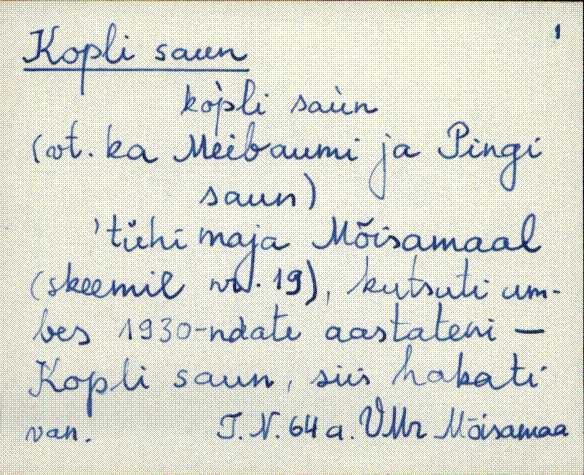 1
Kopli saun
kòpli saùn
(vt. ka Meibaumi ja Pingi
saun)
'tühi maja Mõisamaal
(skeemil nr. 19), kutsuti um-
bes 1930-ndate aastateni —
Kopli saun, siis hakati
van. T. N. 64 a. VMr Mõisamaa